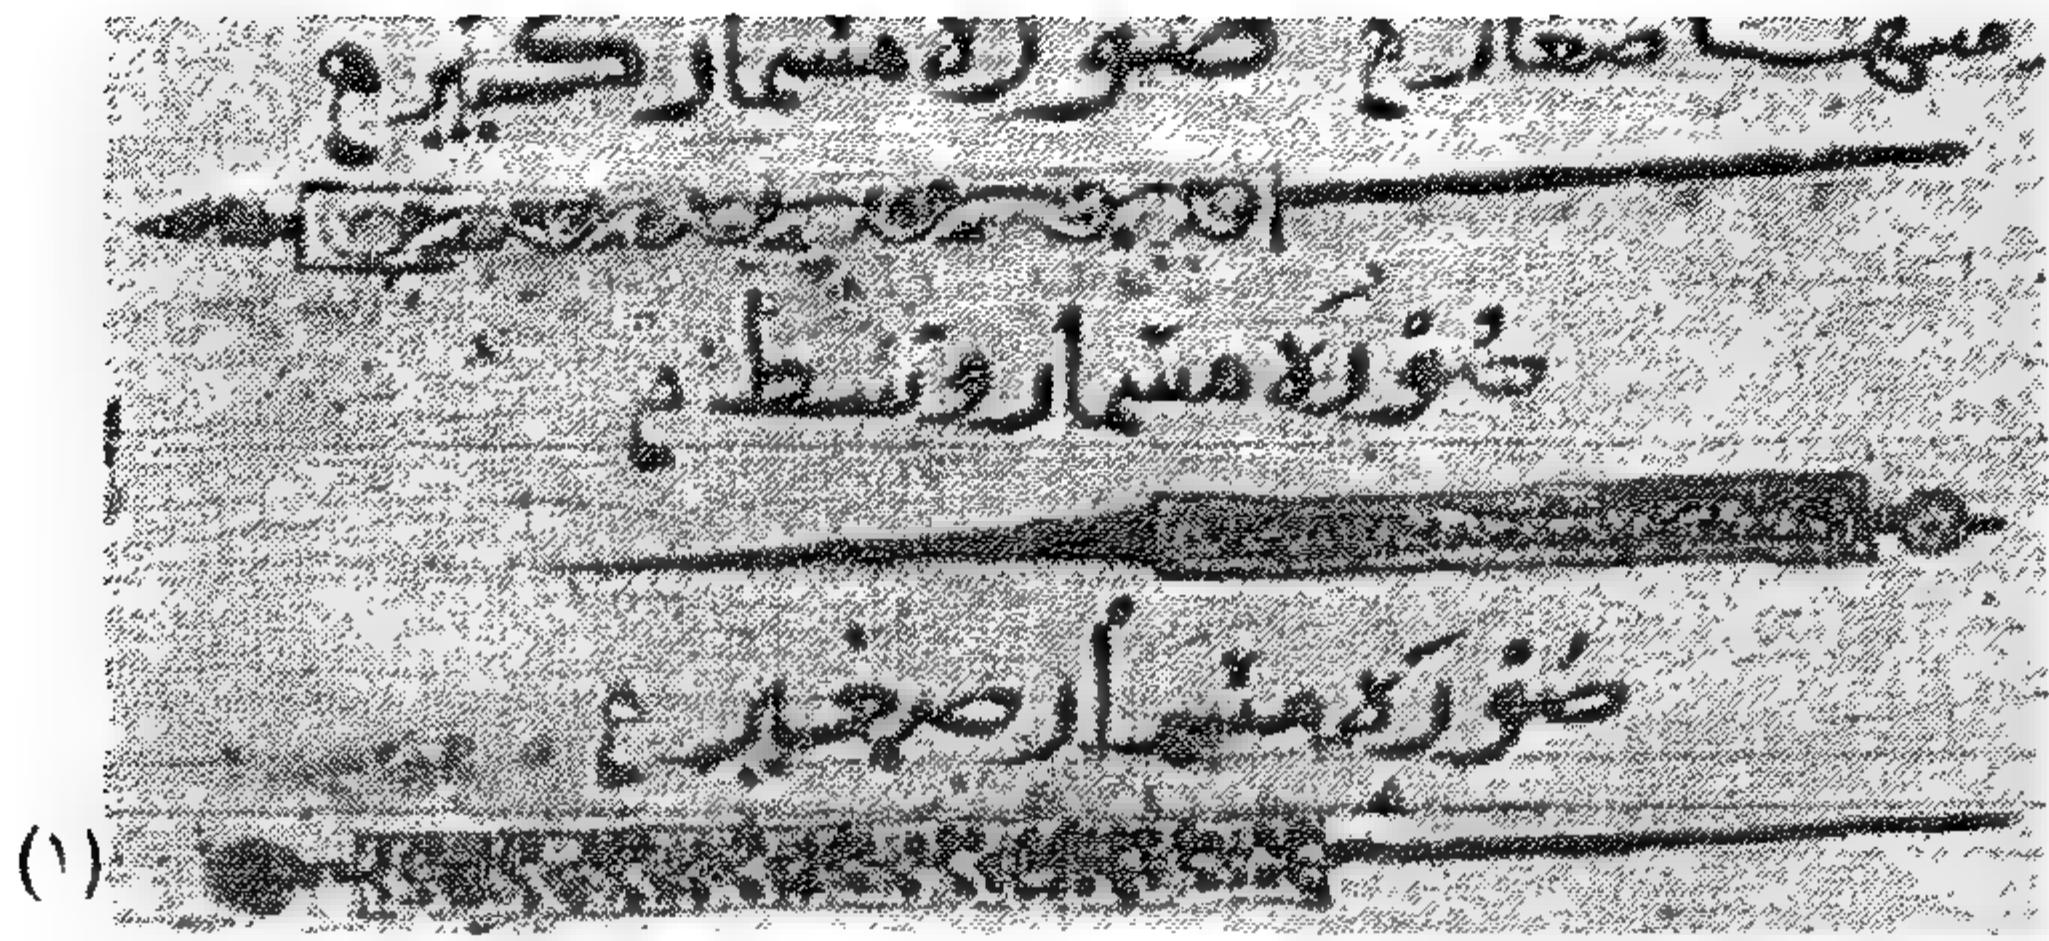 منها صغار م صورة مسبار كبير م
صورة مسبار وسط م
صورة مسبار صغير م
(١)